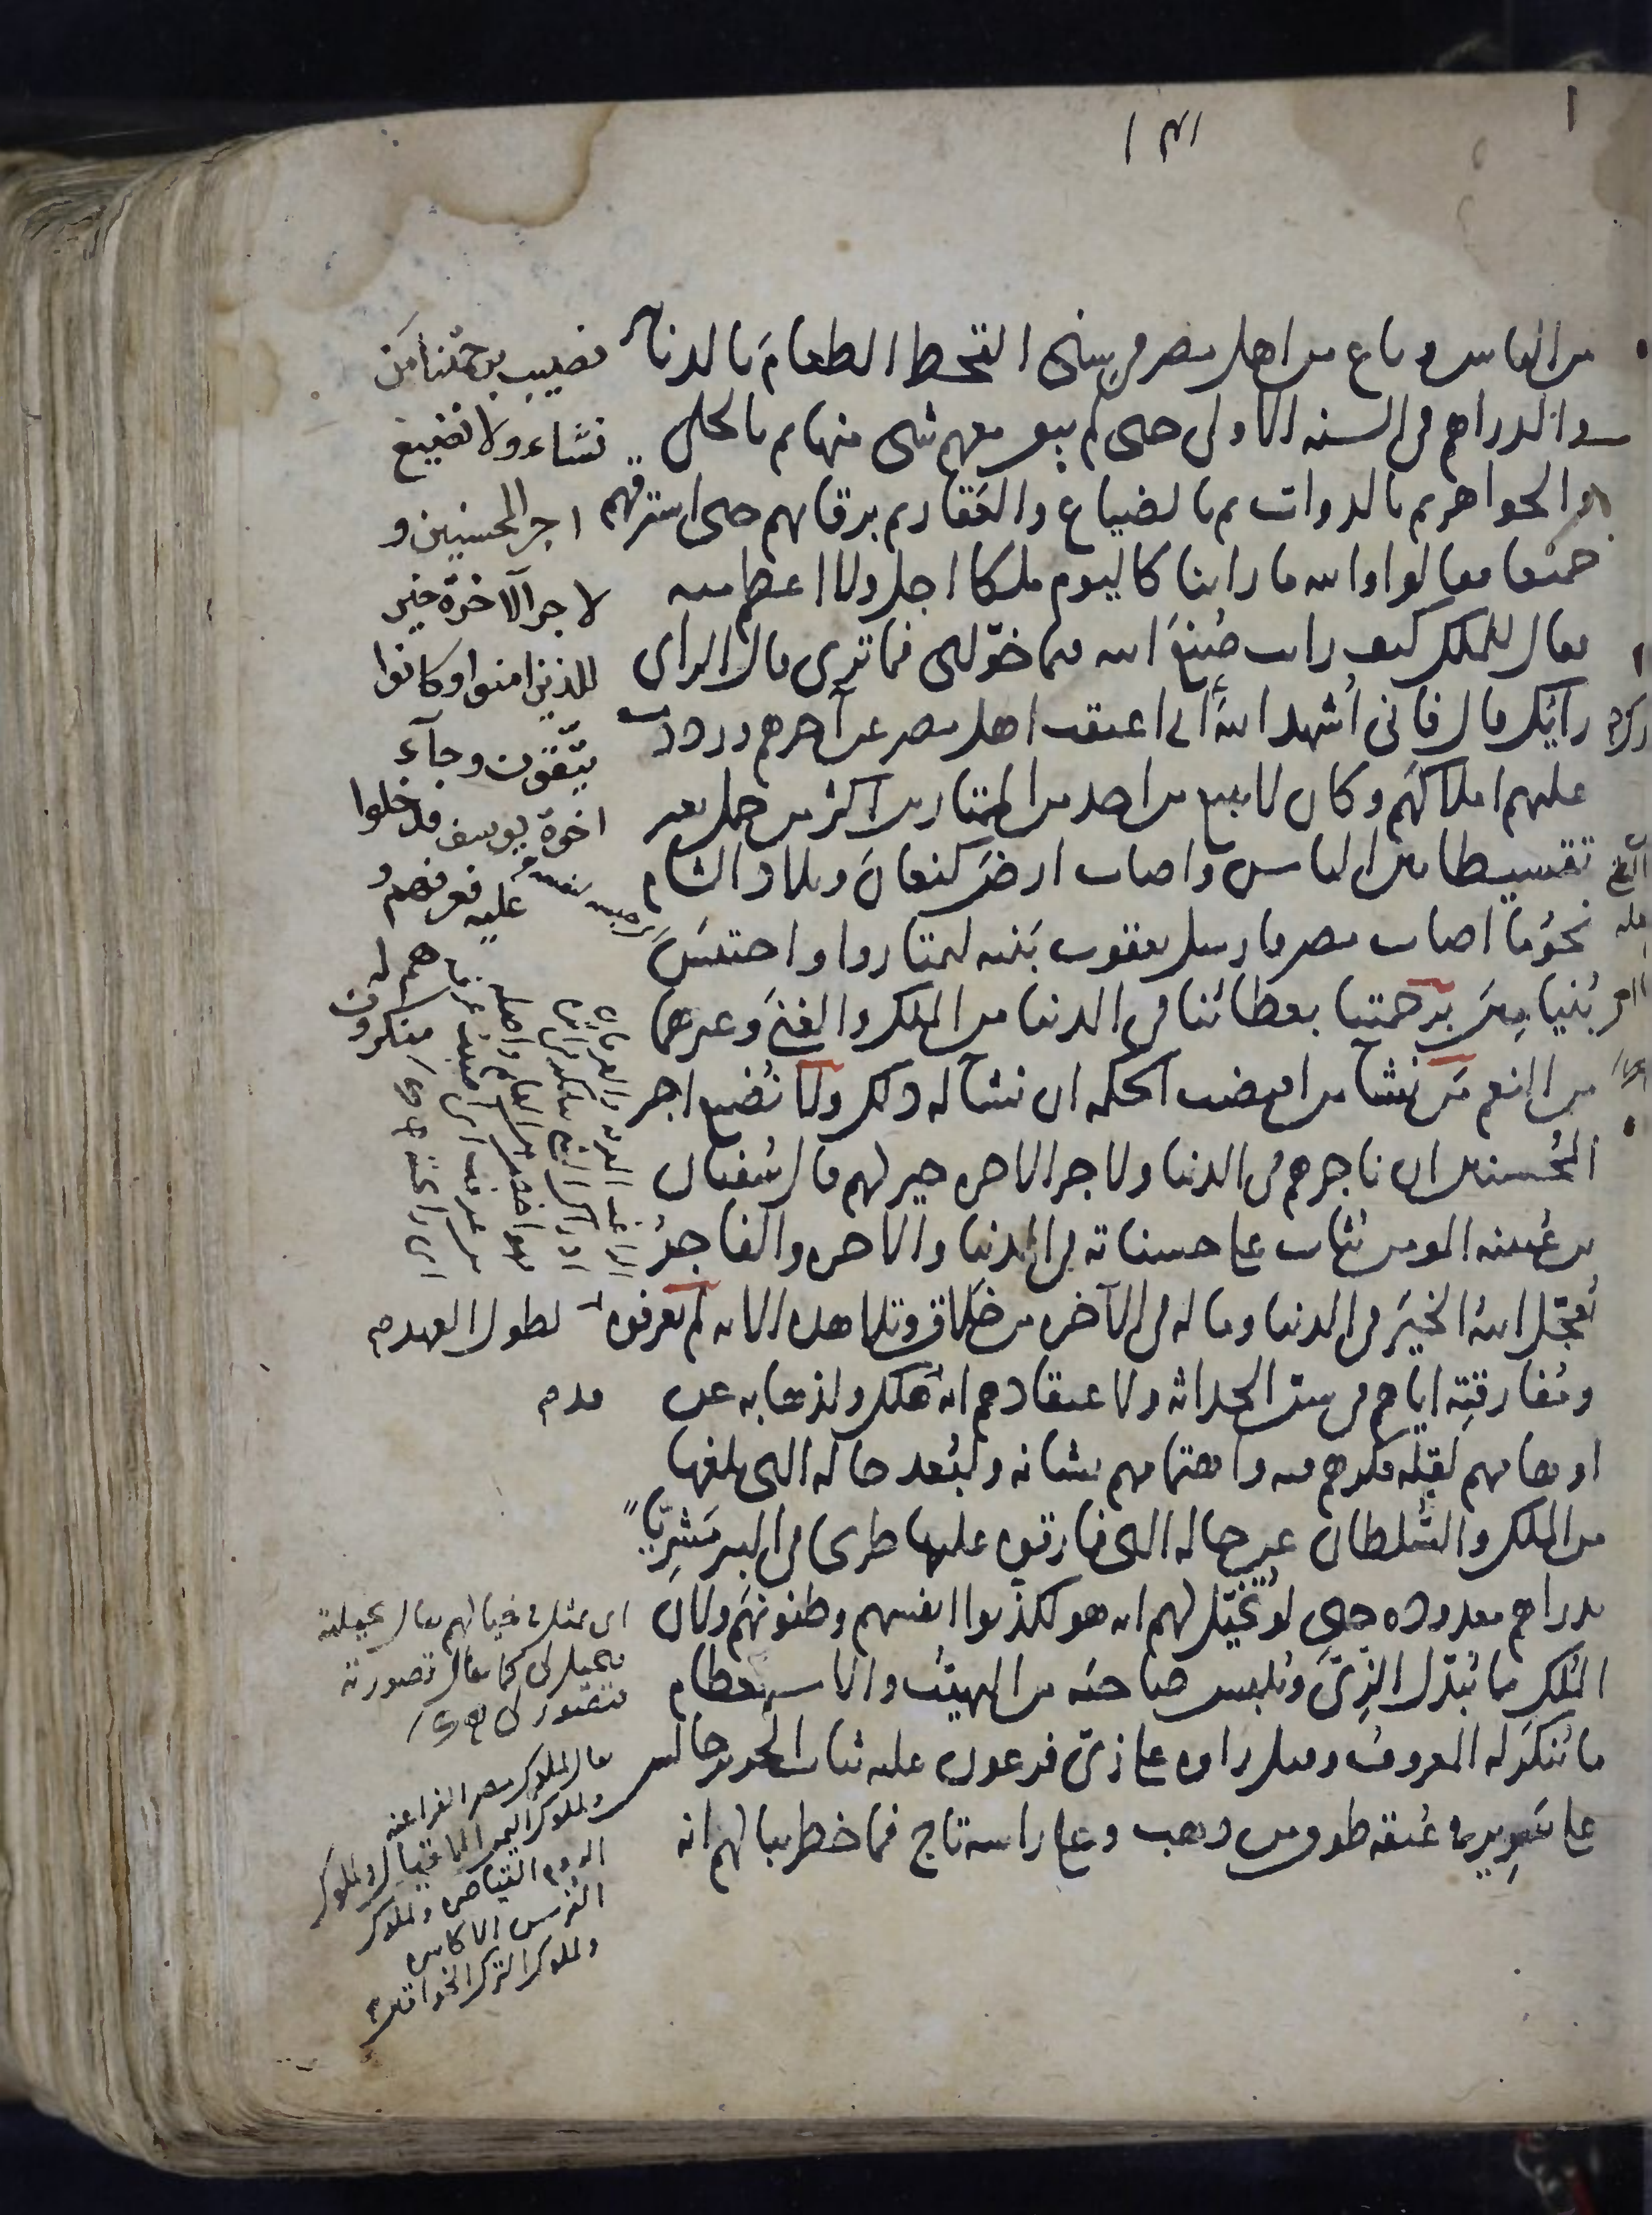 ١٣١
من الناس وباع من اهل مصر في سنى القحط الطعام بالدنانير
والدراهم في السنه الاولى حتى لم يبق معهم شى منها ثم بالحلى
والجواهر ثم بالدواب ثم بالضياع والعقار ثم برقابهم حتى استرقهم
جميعا فقالوا والله ما راينا كاليوم ملكا اجل ولا اعظم منه
فقال للملك كيف رايت صُنعَ الله بى فيما خوّلنى فما ترى قال الراى
رايُك قال فانى اُشهد اللهَ انى اعتقت اهل مصر عن آخرهم ورددت
عليهم املاكهم وكان لا يبيع من احد من الممتارين اكثر من حمل بعير
تقسيطا بين الناس واصاب ارضَ كنعانَ وبلاد الشام
نحوُ ما اصاب مصر فارسل يعقوب بَنيه ليمتاروا واحتبسَ
بُنيامين برحمتنا بعطائنا في الدنيا من الملك والغنى وغيرهما
من النعم مَن نشا من اقتضت الحكمه ان نشا له ذلك ولا نُضيع اجر
المُحسنين ان ناجرهم في الدنيا ولاجر الاخره خير لهم قال سُفيان
بن عُيينه المومن يُثاب على حسناته في الدنيا والاخره والفاجرُ
يُعجّل له الخيرَ في الدنيا وما له في الآخره من خَلاق وتلا هذه الايه لم يعرفوه لطول العهد
ومُفارقتِه اياهم في سنّ الحداثه ولاعتقادهم انه هلك ولذهابه عن
اوهامهم لقِلّة فكرهم فيه واهتمامهم بشانه ولبُعد حاله التى بلغها
من الملك والسُّلطان عن حاله التى فارقوه عليها طريحا في البير مَشْرِيّاً
بدراهم معدوده حتى لو تُخيّل لهم انه هو لكذّبوا انفسهم وظنونَهم ولان
المُلك مما يُبدّل الزِّىَّ ويُلبس صاحبَه من التهيّب والاستعظام
ما يُنكَر له المعروفُ وقيل راوه على زىّ فرعون عليه ثياب الحرير جالسا
على سَرِير في عُنقه طوق من ذهب وعلى راسه تاج فما خطر ببالهم انه
نصيب برحمتنا من
نشاء ولا نضيع
اجر المحسنين و
لاجر الآخرة خير
للذين امنوا وكانوا
يتّقون وجآء
اخوة يوسف فدخلوا
عليه فعرفهم و
هم له
منكرون
اى تمثل في خيالهم يقال تخيلته
فتخيل لى كما يقال تصورته
فتصور لى
يقال لملوك مصر الفراعنه
ولملوك اليمن الاقيال ولملوك
الروم القياصره ولملوك
الفرس الاكاسره
ولملوك الترك الخواقين